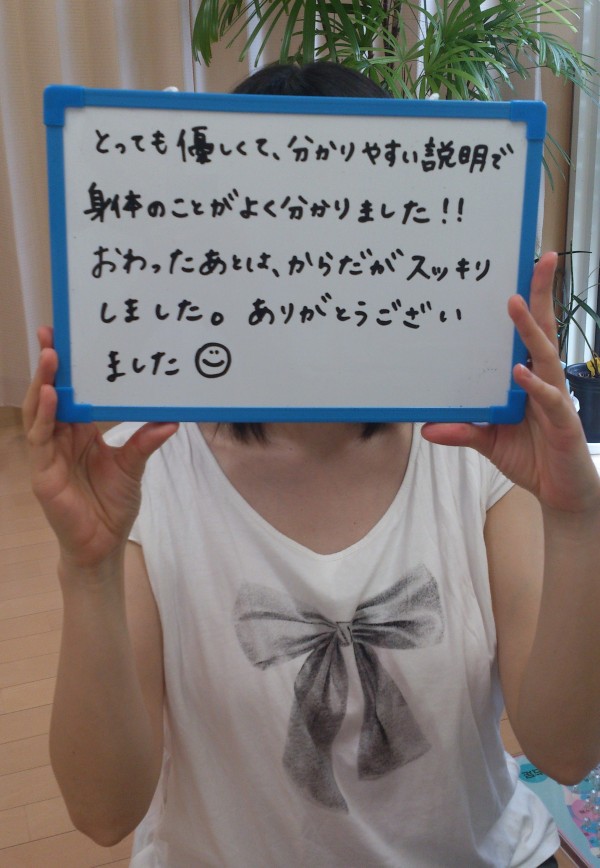 とっても優しくて、分かりやすい説明で
身体のことがよく分かりました!!
おわったあとは、からだがスッキリ
しました。ありがとうござい
ました